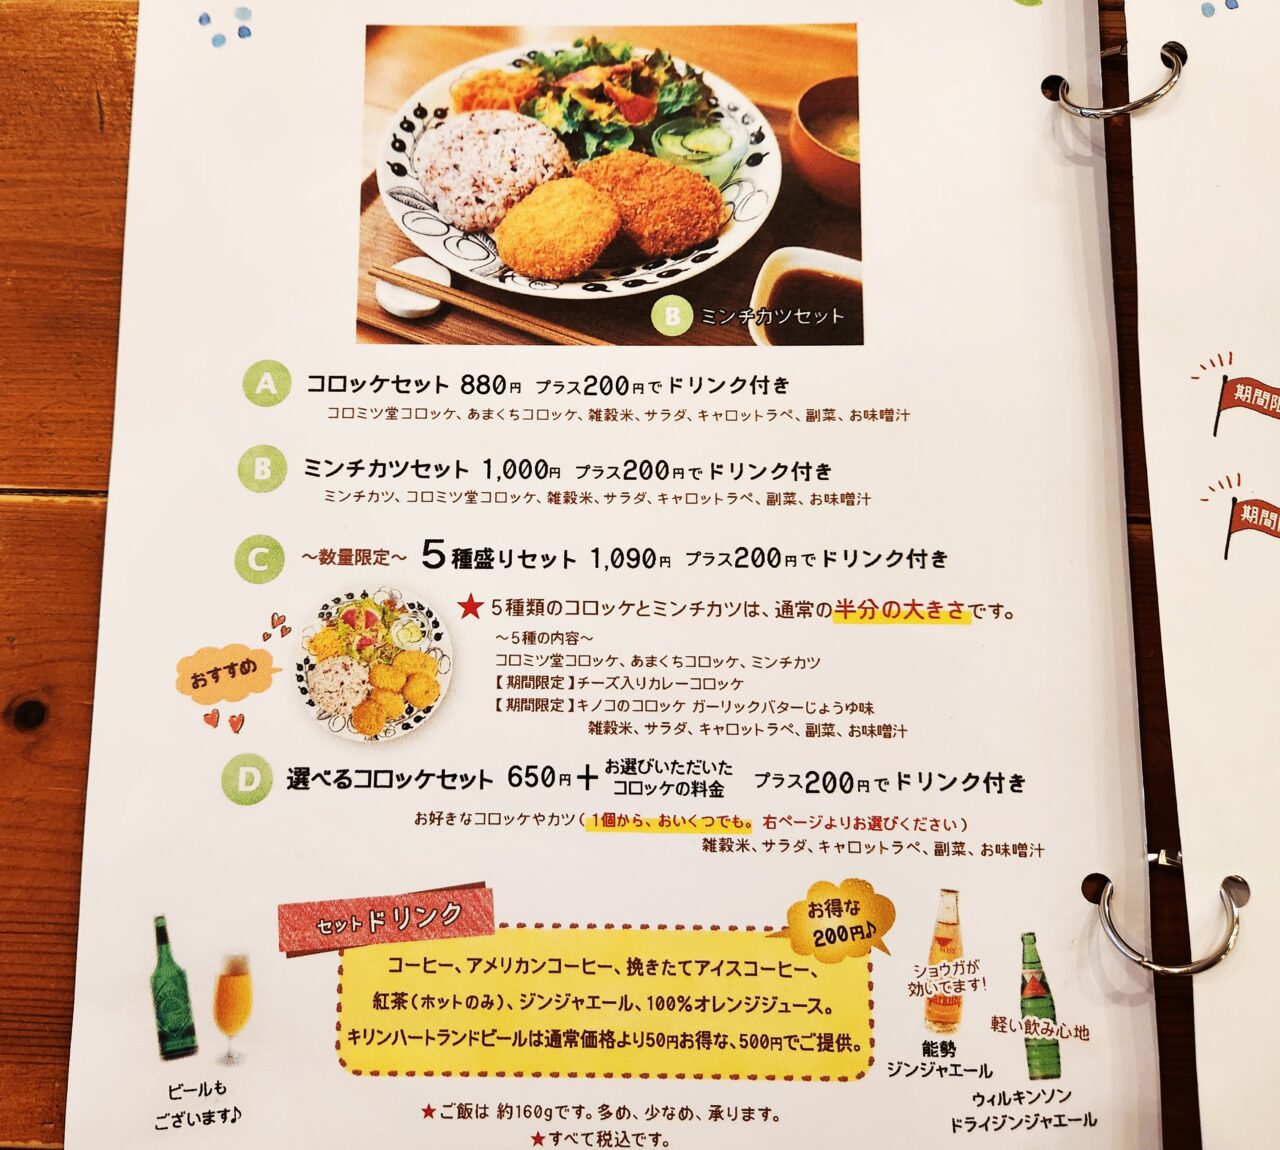 B ミンチカツセット
A コロッケセット 880円 プラス200円でドリンク付き
コロミツ堂コロッケ、あまくちコロッケ、雑穀米、サラダ、キャロットラペ、副菜、お味噌汁
B ミンチカツセット 1,000円 プラス200円でドリンク付き
ミンチカツ、コロミツ堂コロッケ、雑穀米、サラダ、キャロットラペ、副菜、お味噌汁
C ～数量限定～ 5種盛りセット 1,090円 プラス200円でドリンク付き
おすすめ
★5種類のコロッケとミンチカツは、通常の半分の大きさです。
～5種の内容～
コロミツ堂コロッケ、あまくちコロッケ、ミンチカツ
【期間限定】チーズ入りカレーコロッケ
【期間限定】キノコのコロッケ ガーリックバターじょうゆ味
雑穀米、サラダ、キャロットラペ、副菜、お味噌汁
D 選べるコロッケセット 650円＋お選びいただいた
コロッケの料金 プラス200円でドリンク付き
お好きなコロッケやカツ（1個から、おいくつでも。右ページよりお選びください）
雑穀米、サラダ、キャロットラペ、副菜、お味噌汁
セットドリンク
お得な
200円♪
コーヒー、アメリカンコーヒー、挽きたてアイスコーヒー、
紅茶（ホットのみ）、ジンジャエール、100%オレンジジュース。
キリンハートランドビールは通常価格より50円お得な、500円でご提供。
ビールも
ございます♪
ショウガが
効いてます！
能勢
ジンジャエール
軽い飲み心地
ウィルキンソン
ドライジンジャエール
★ご飯は 約160gです。多め、少なめ、承ります。
★すべて税込です。
期間
期間